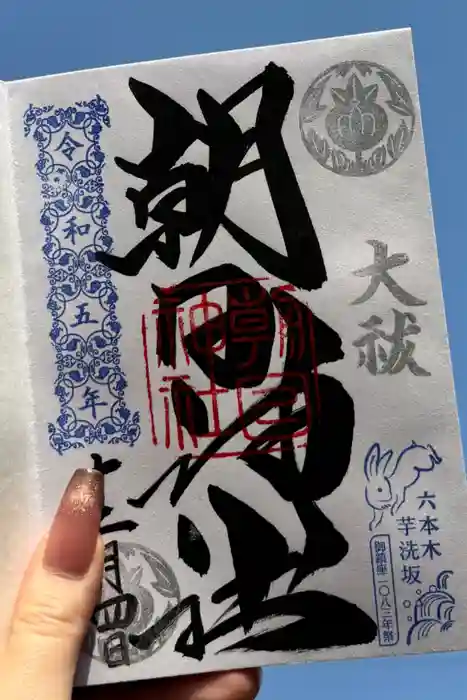 大祓
六本木
芋洗坂
御鎮座一〇八三年祭
朝日神社
朝日
神社
令和五年
十二月四日